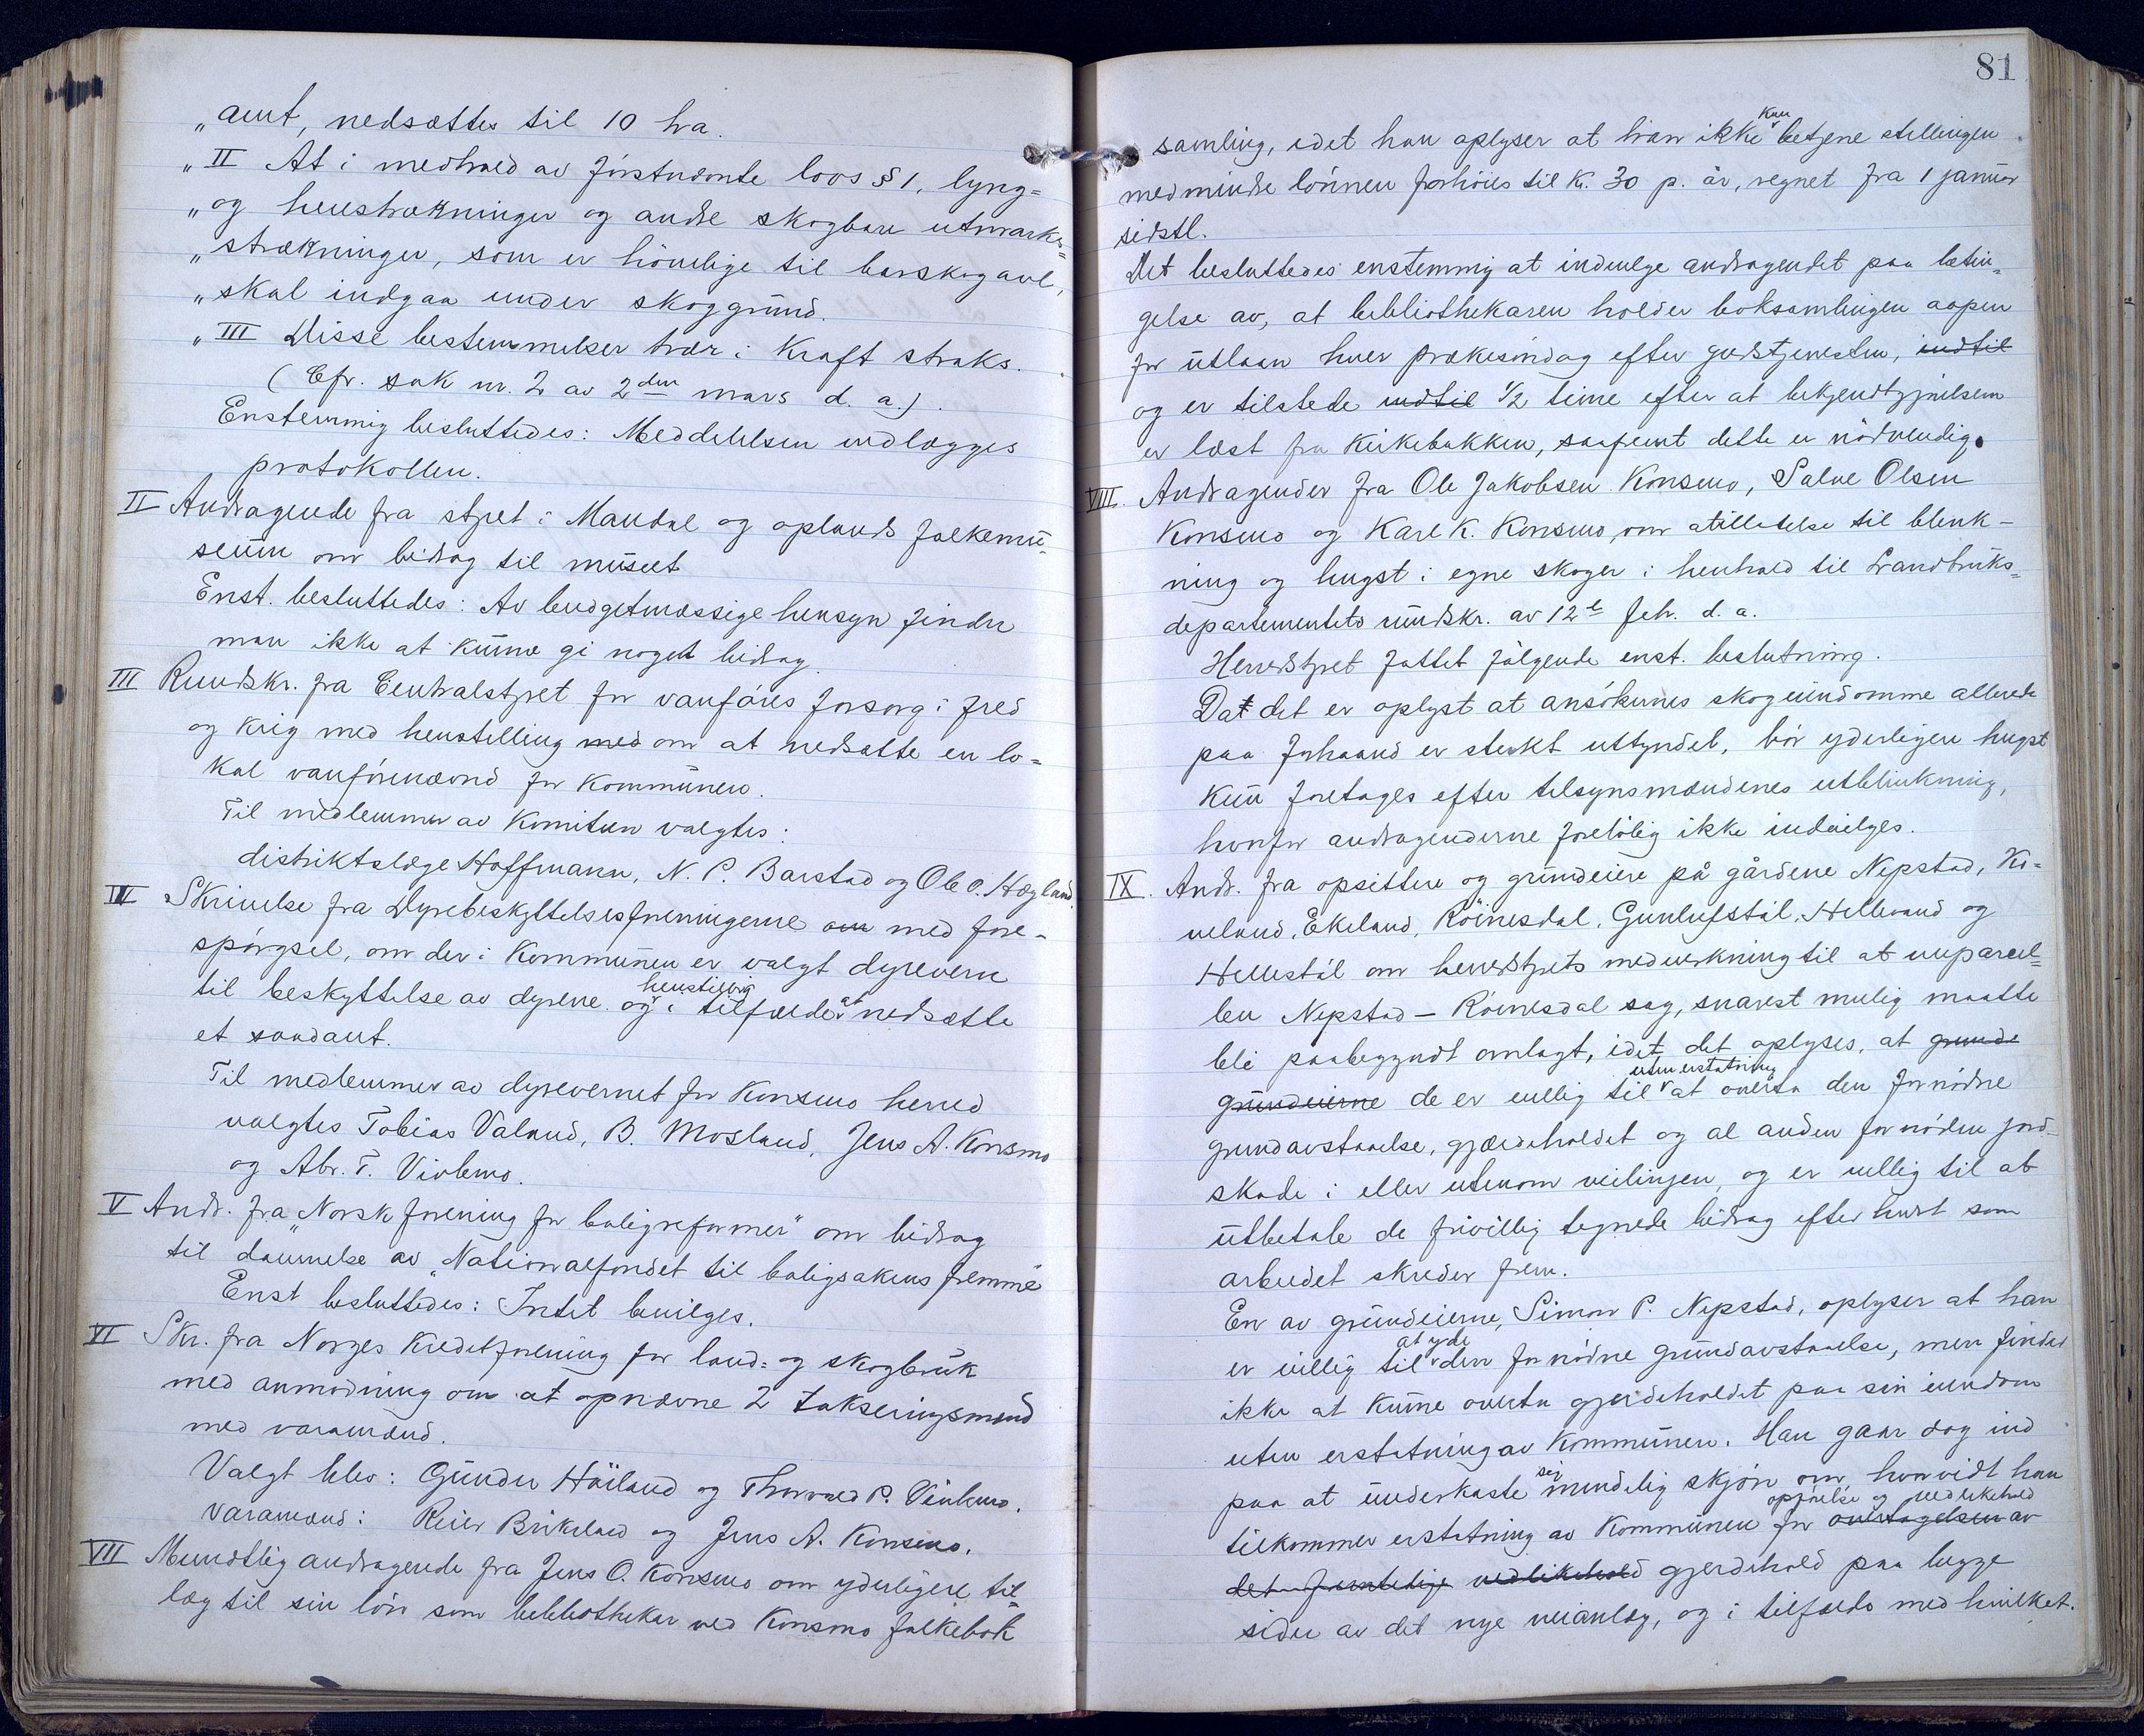 „amt, nedsættes til 10 ha.
„II At i medhold av førstnævnte lovs § 1, lyng=
„og heistrækninger og andre skogbare utmarks=
„strækninger, som er høvelige til barskogavl,
„skal indgaa under skoggrund.
„III Disse bestemmelser trær i kraft straks.
(Cfr. sak nr. 2 av 2den mars d. a.).
Enstemmig besluttedes: Meddelelsen indlægges
protokollen.
II Andragende fra styret i Mandal og oplands folkemu=
seum om bidrag til museet
Enst. besluttedes: Av budgetmæssige hensyn finder
man ikke at kunne gi noget bidrag.
III Rundskr. fra Centralstyret for vanføres forsorg i fred
og krig med henstilling med om at nedsætte en lo=
kal vanførenævnd for kommunen.
Til medlemmer av komiteen valgtes:
distriktslæge Hoffmann, N. P. Barstad og Ole O. Høgland.
IV Skrivelse fra Dyrebeskyttelsesforeningerne om med fore-
spørgsel, om der i kommunen er valgt dyrevern
til beskyttelse av dyrene og henstilling i tilfælde at nedsætte
et saadant.
Til medlemmer av dyrevernet for Konsmo herred
valgtes Tobias Valand, B. Mosland, Jens A. Konsmo
og Abr. T. Vivlemo.
V Andr. fra „Norsk forening for boligreformer" om bidrag
til dannelse av „Nationalfondet til boligsakens fremme
Enst besluttedes: Intet bevilges.
VI Skr. fra Norges Kreditforening for land= og skogbruk
med anmodning om at opnævne 2 takseringsmænd
med varamænd.
Valgt blev: Gunder Høiland og Thorvald P. Vivlemo.
Varamænd: Reier Brikeland og Jens A. Konsmo.
VII Mundtlig andragende fra Jens O. Konsmo om yderligere til=
læg til sin løn som bibliothekar ved Konsmo folkebok
81
samling, idet han oplyser at han ikke kan betjene stillingen
medmindre lønnen forhøies til kr. 30 p. år, regnet fra 1 januar
sidstl.
Det besluttedes enstemmig at indvilge andragendet paa betin=
gelse av, at bibliothekaren holder boksamlingen aapen
for utlaan hver prækesøndag efter gudstjenesten, indtil
og er tilstede indtil 1/2 time efter at bekjendtgjørelserne
er læst fra kirkebakken, saafremt dette er nødvendig.
VIII. Andragender fra Ole Jakobsen Konsmo, Salve Olsen
Konsmo og Karl K. Konsmo, om tilladelse til blink-
ning og hugst i egne skoger i henhold til Landbruks=
departementets rundskr. av 12te febr. d. a.
Herredstyret fattet følgende enst. beslutning.
Da det er oplyst at ansøkernes skogeiendomme allerede
paa forhaand er sterkt uttyndet, bør yderligere hugst
kun foretages efter tilsynsmændenes utblinkning,
hvorfor andragenderne foreløbig ikke indvilges.
IX. Andr. fra opsittere og grundeiere på gårdene Nepstad, Ki=
veland, Ekeland, Røinesdal, Gunlufstøl, Hellevand og
Hellestøl om herredstyrets medvirkning til at veiparcel=
len Nepstad – Røinesdal sag, snarest mulig maatte
bli paabegyndt omlagt, idet det oplyses, at grunde
grundeierne de er villig til uten erstatning at overta den fornødne
grundavstaaelse, gjærdeholdet og al anden fornøden jord-
skade i eller utenom veilinjen, og er villig til at
utbetale de frivillig tegnede bidrag efterhvert som
arbeidet skrider frem.
En av grundeierne, Simon P. Nepstad, oplyser at han
er villig til at yde den fornødne grundavstaaelse, men finder
ikke at kunne overta gjerdeholdet paa sin eiendom
uten erstatning av kommunen. Han gaar dog ind
paa at underkaste sig mindelig skjøn om hvorvidt han
tilkommer erstatning av kommunen for opførelse og vedlikehold overtagelsen av
det fremtidige vedlikehold gjerdehold paa begge
sider av det nye veianlæg, og i tilfælde med hvilket.